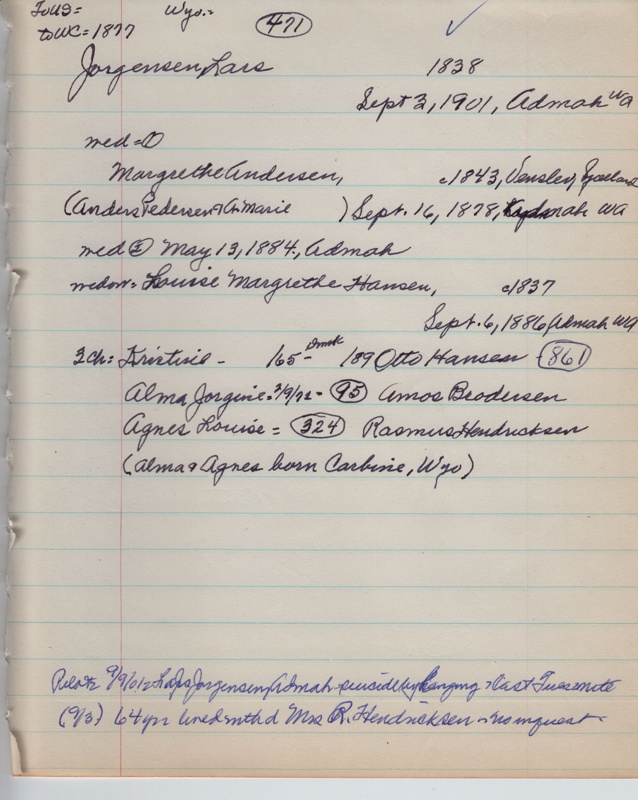 To US = Wyo. =
to WC = 1877
471
Jorgensen, Lars 1838
Sept 3, 1901, Admah WA
med = ①
Margrethe Andersen, c1843, Venslev,
(Anders Pedersen & A. Marie ) Sept. 16, 1878, Admah WA
med ② May 13, 1884, Admah
widow = Louise Margrethe Hansen, c1837
Sept. 6, 1886 Admah WA
3 ch: Kristine - 165 - Dmk 189 Otto Hansen - 861
Alma Jorgine = 3/9/72 - 95 Amos Brodersen
Agnes Louise = 324 Rasmus Hendricksen
(Alma & Agnes born Carbine, Wyo)
Pilot = 9/9/01 = Lars Jorgensen, Admah - suicide by hanging = last Tues nite
(9/3) 64 yrs lived with d Mrs R. Hendricksen - no inquest -